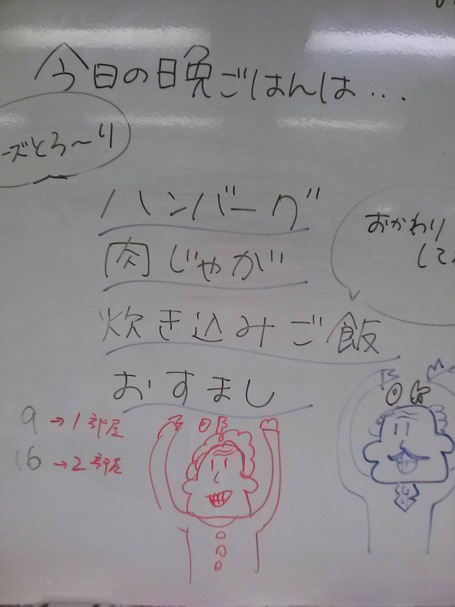 今日の晩ごはんは...
ーズとろ～り
ハンバーグ
肉じゃが
おかわり
して
炊き込みご飯
おすまし
9→1部屋
16→2部屋